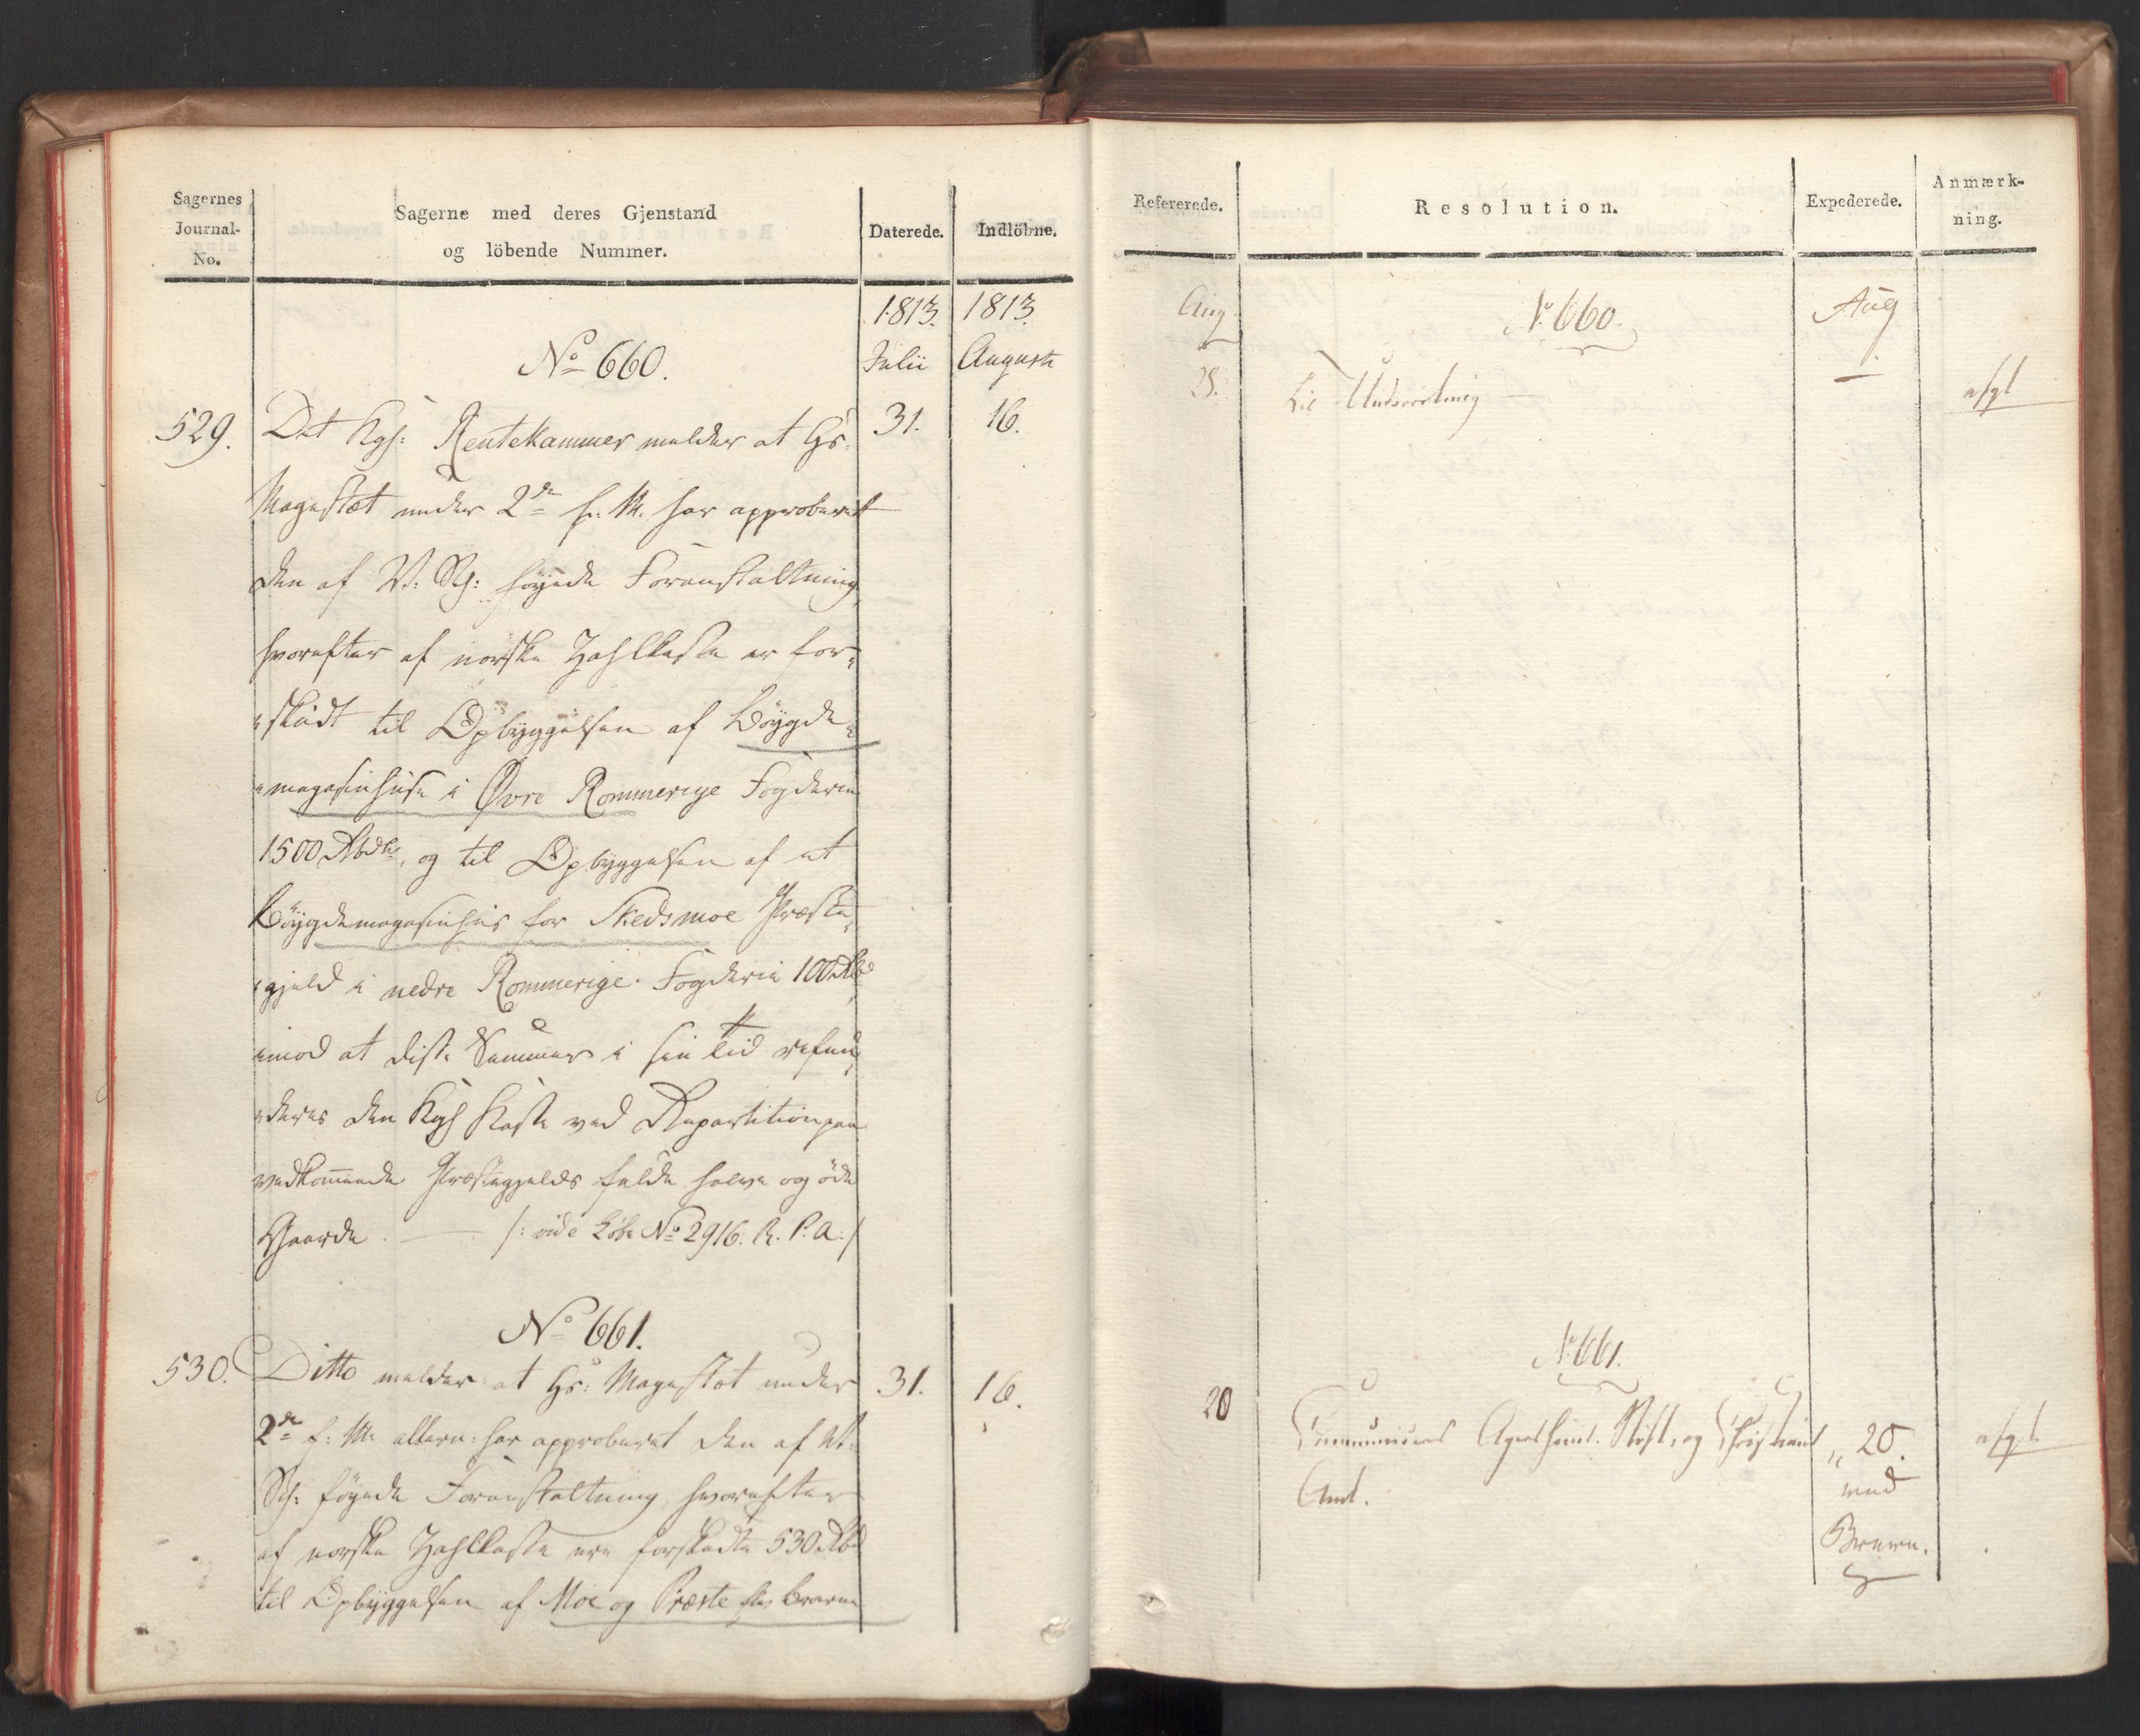 Sagernes
Journal-
No.
Sagerne med deres Gjenstand
og löbende Nummer.
Daterede.
Indlöbne.
1813. 1813.
Julii Augusti
No 660.
529. Det Kgl: Rentekammer melder at Hs: 31. 16.
Mayestæt under 2de f. M. har approberet
den af V: Sch: föyede Foranstaltning
hvorefter af norske Zahlkasse er for-
skudt til Opbyggelsen af Böygde-
magasinhuse i Øvre Rommerige Fogderie
1500 Rbdlr, og til Opbyggelsen af et
Böygdemagasinhus for Skedsmoe Præste-
gjeld i nedre Rommerige Fogderie 100 Rbd
imod at disse Summer i sin Tid refun-
deres den Kgl Kasse ved Repartition paa
vedkommende Præstegjelds fulde halve og öde
Gaarde. /: vide Löbe No 2916. R. P. A:/
No 661.
530. Ditto melder at Hs: Mayestæt under 31. 16.
2de f: M. allern: har approberet den af
Sch: föyede Foranstaltning, hvorefter
af norske Zahlkasse ere forskudte 530 Rbd
til Opbyggelsen af Moe og Præste
Refererede.
Resolution.
Expederede.
Anmærk-
ning.
Aug No 660. Aug
25. Til Underretning afgl
No 661.
20 Communiceres Agershuus Stift, og Christians „ 20. afgl
Amt. med